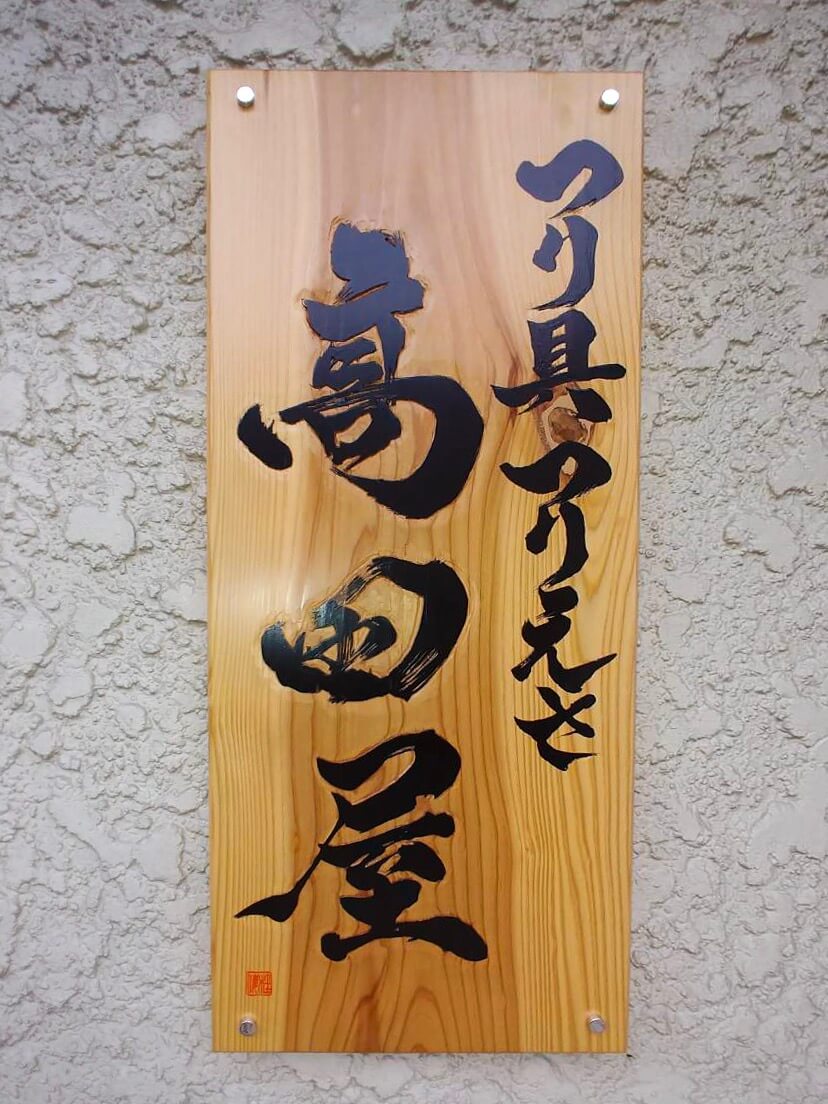 つり具つりえさ
高田屋